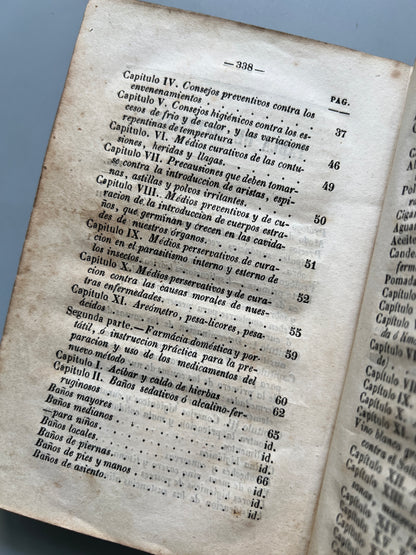 —338—
PAG.
Capítulo IV. Consejos preventivos contra los
envenenamientos 37
Capítulo V. Consejos higiénicos contra los es-
cesos de frio y de calor, y las variaciones
repentinas de temperatura 46
Capítulo. VI. Médios curativos de las contu-
siones, heridas y llagas. 49
Capítulo VII. Precausiones que deben tomar-
se contra la introduccion de aristas, espi-
nas, astillas y polvos irritantes. 50
Capítulo VIII. Médios preventivos y de cu-
racion de la introduccion de cuerpos estra-
ños, que germinan y crecen en las cavida-
des de nuestros órganos. 51
Capítulo IX. Médios perservativos de cura-
cion en el parasitismo interno y esterno de
los insectos. 52
Capítulo X. Médios perservativos y de cura-
cion contra las causas morales de nues-
tras enfermedades. 55
Capítulo XI. Areómetro, pesa-licores, pesa-
ácidos 59
Segunda parte.—Farmácia doméstica y por-
tátil, ó instruccion práctica para la pre-
paracion y uso de los medicamentos del
nuevo método 60
Capítulo I. Acíbar y caldo de hierbas 62
Capítulo II. Baños sedativos ó alcalino-fer-
ruginosos 65
Baños mayores id.
Baños medianos id.
—para niños id.
Baños locales. id.
Baños de piernas. 66
Baños de pies y manos id.
Baños de asiento. id.
Capítulo
Capítulo
Capítulo
Capítulo
Capítulo